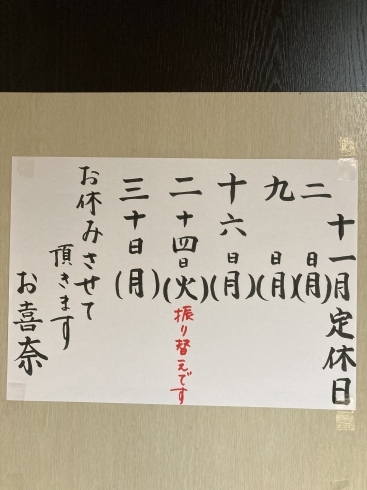 十一月定休日
二日(月)
九日(月)
十六日(月)
二十四日(火)振り替えです
三十日(月)
お休みさせて
頂きます
お喜奈